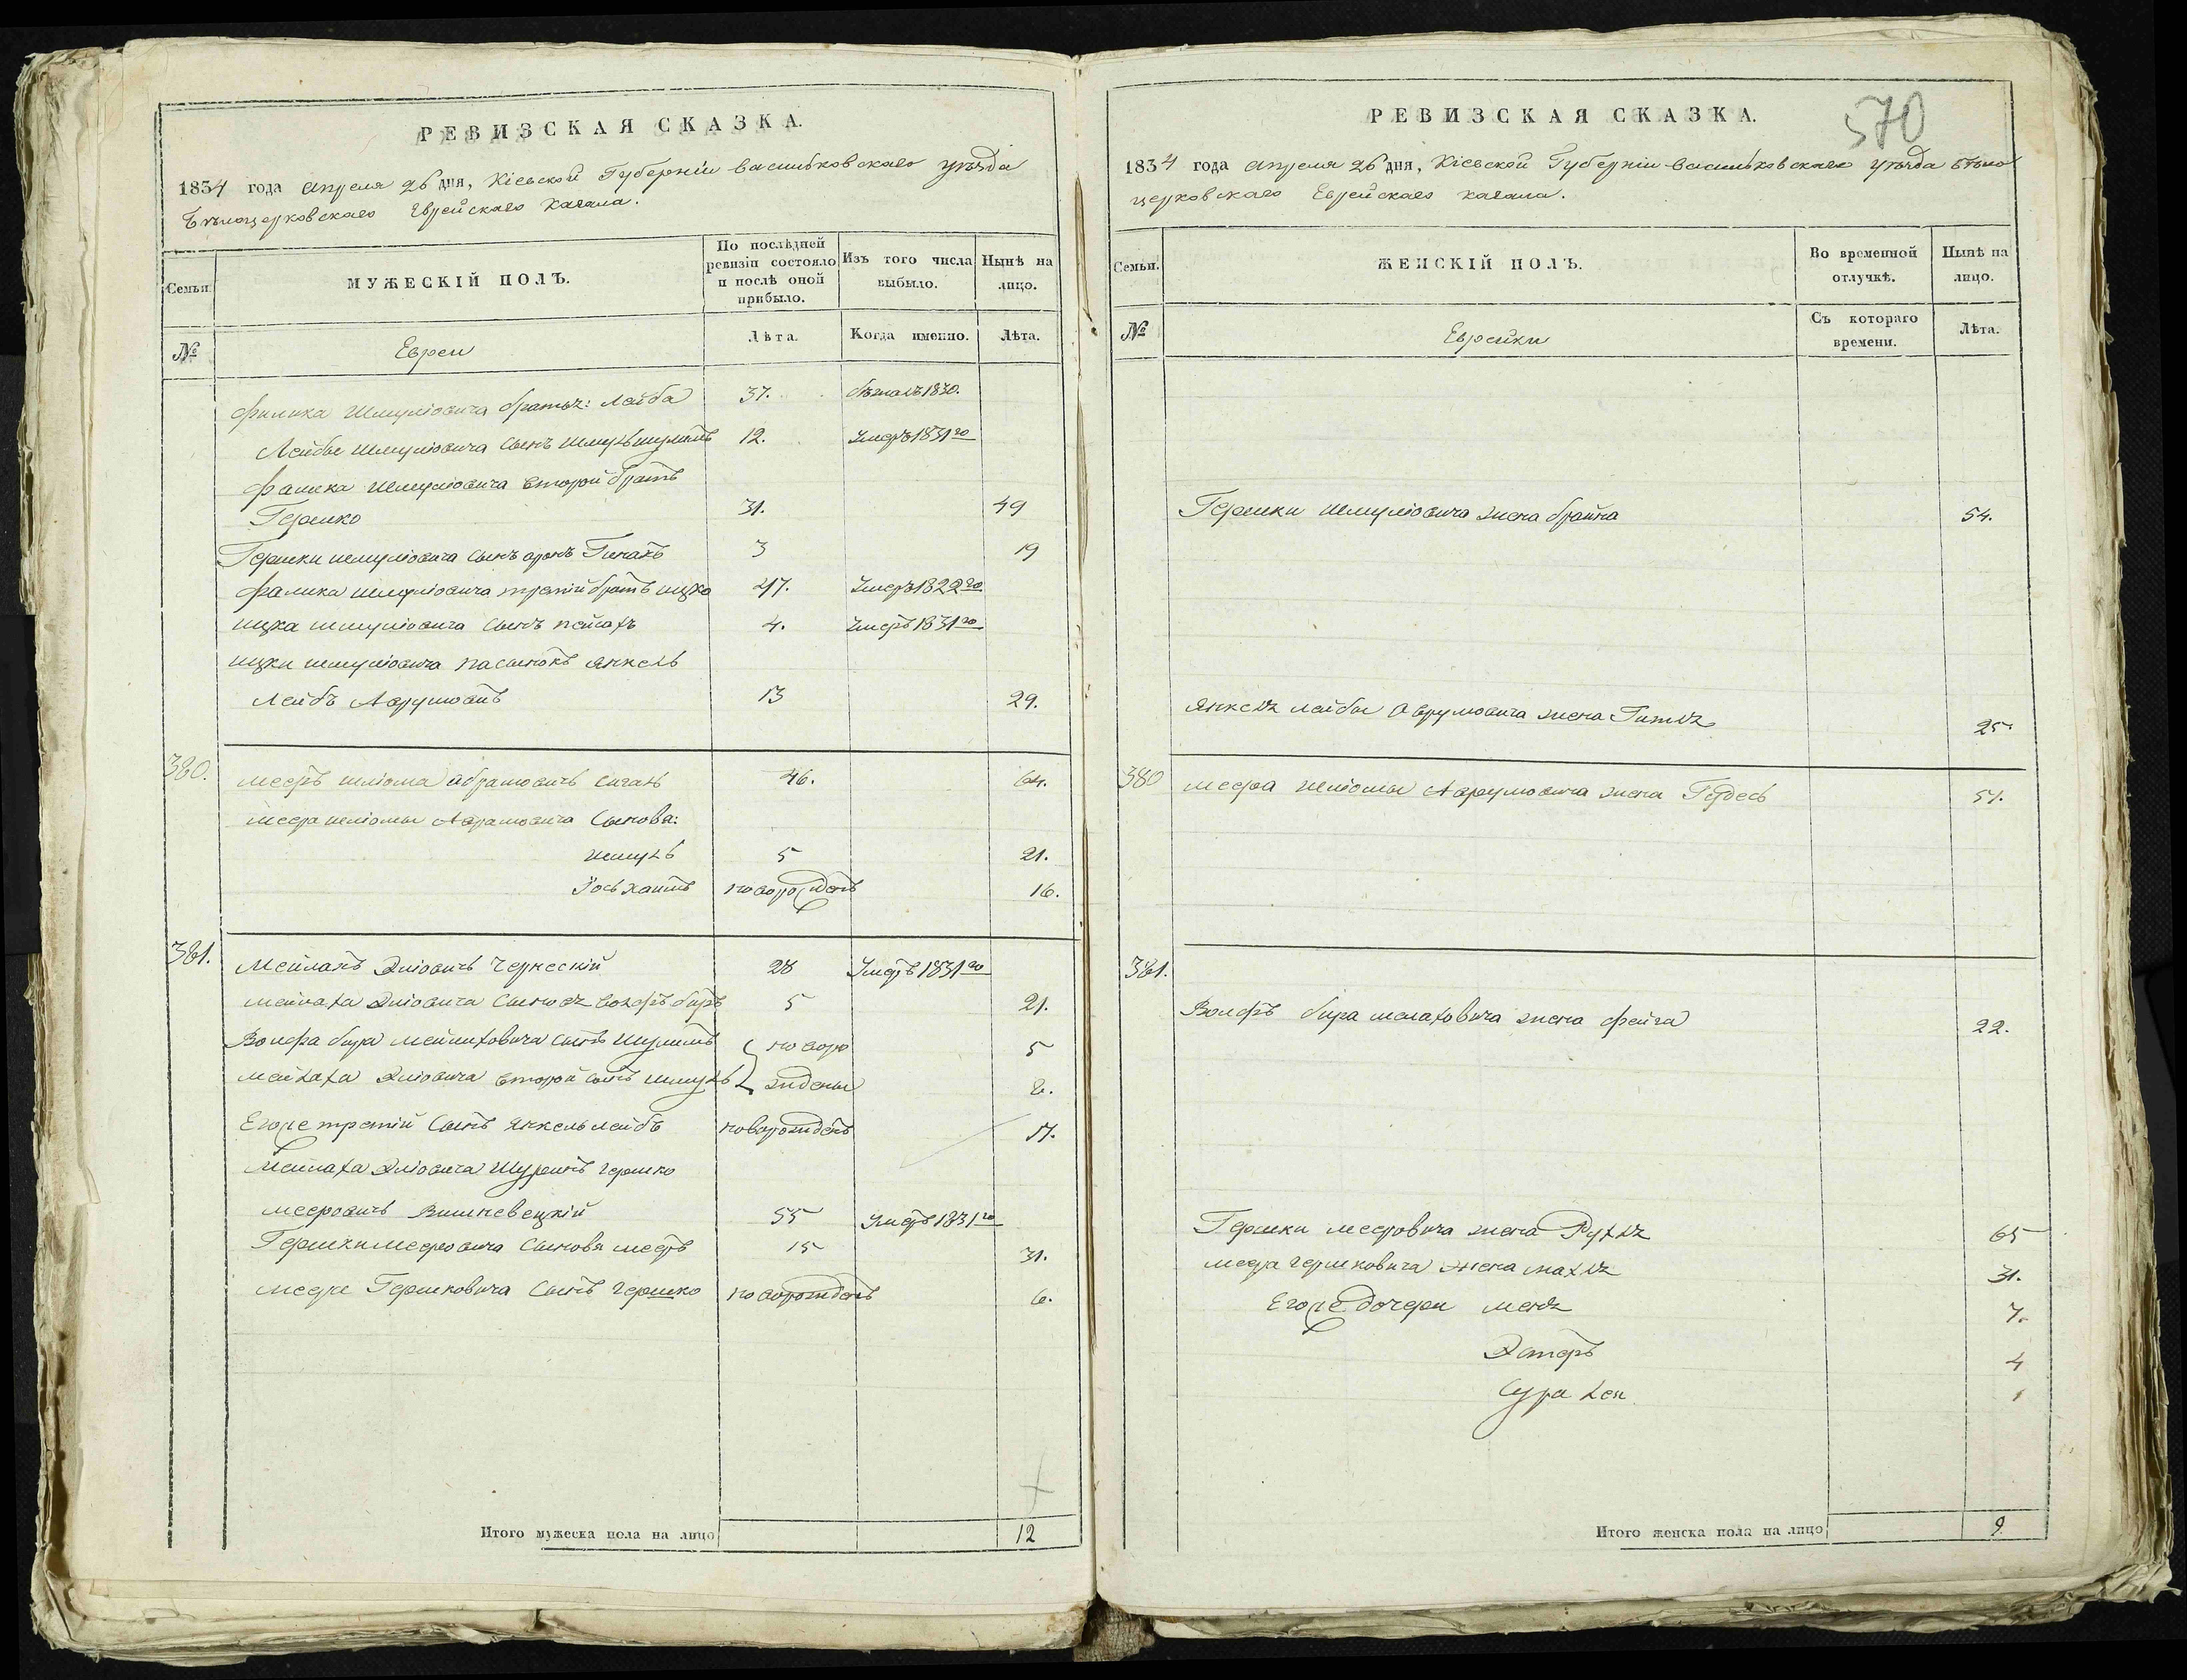 РЕВИЗСКАЯ СКАЗКА.
1834 года Апреля 26 дня, Кіевской Губерніи Васильковскаго уѣзда
Бѣлоцерковскаго Еврейскаго Кагала.
Семьи.
МУЖЕСКІЙ ПОЛЪ.
По послѣдней ревизіи состояло и послѣ оной прибыло.
Изъ того числа выбыло.
Нынѣ на лицо.
№
Евреи
Лѣта.
Когда именно.
Лѣта.
Фалика Шмуліовича братья: Лейба 37. бѣжалъ 1830.
Лейбы Шмуліовича сынъ Шмуль 12. Умеръ 1831го
Фалика Шмуліовича второй братъ
Гершко 31. 49
Гершки Шмуліовича сынъ 3 19
Фалика Шмуліовича третій братъ Ицко 47. Умеръ 1822го
Ицка Шмуліовича сынъ Пейсахъ 4. Умеръ 1831го
Ицки Шмуліовича пасынокъ Янкель
Лейбъ Аврумовичъ 13 29.
380. Мееръ Шліома Абрамовичъ 46. 64.
Меера Шліомы Аврамовича Сыновья:
Шмуль 5 21.
Хаимъ новорожденъ 16.
381. Мейлахъ Эліовичъ Черкескій 28 Умеръ 1831го
Мейлаха Эліовича сыновья Вольфъ Беръ 5 21.
Вольфа Бера Мейлаховича сынъ новоро 5
Мейлаха Эліовича второй сынъ Шмуль жденые 8.
Его же третій сынъ Янкель Лейбъ новорожденъ 17.
Мейлаха Эліовича Шуринъ Гершко
Мееровичъ Вишневецкій 55 Умеръ 1831го
Гершки Мееровича Сыновья Мееръ 15 31.
Меера Гершковича Сынъ Гершко новорожденъ 6.
Итого мужеска пола на лицо 12
570
РЕВИЗСКАЯ СКАЗКА.
1834 года Апреля 26 дня, Кіевской Губерніи Васильковскаго уѣзда Бѣло
церковскаго Еврейскаго Кагала.
Семьи.
ЖЕНСКІЙ ПОЛЪ.
Во временной отлучкѣ.
Нынѣ на лицо.
№
Еврейки
Съ котораго времени.
Лѣта.
Гершки Шмуліовича жена Брайна 54.
Янкеля Лейбы Аврумовича жена Гитля 25.
380 Меера Шліомы Аврумовича жена 54.
381.
Вольфъ Бера Мелаховича жена Фейга 22.
Гершки Мееровича жена Рухля 65
Меера Гершковича жена Махля 31.
Его же дочери Меня 7.
Эстеръ 4
Сура Лея 1
Итого женска пола на лицо 9